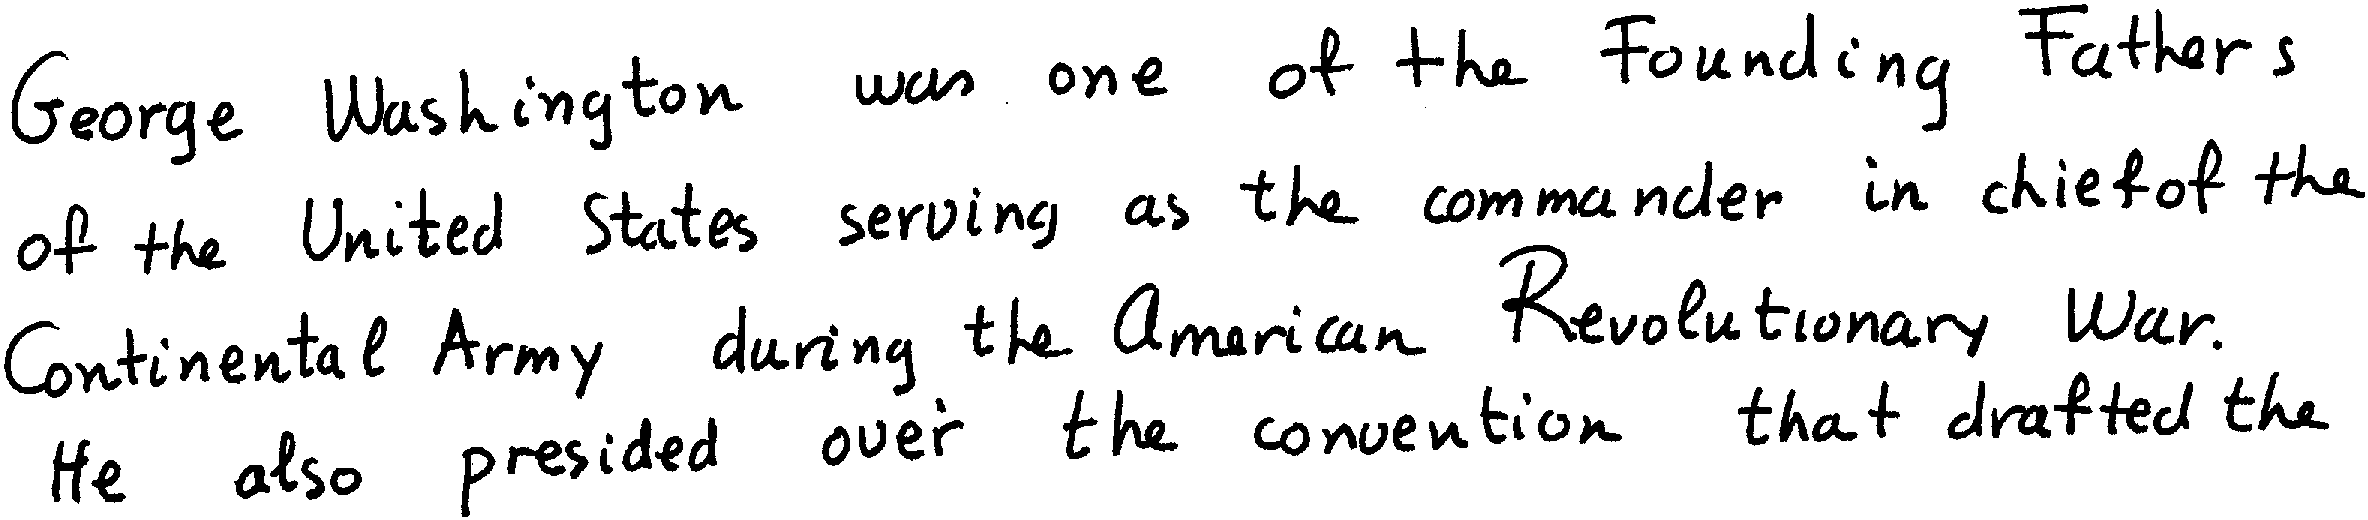 George Washington was one of the Founding Fathers
of the United States serving as the commander in chief of the
Continental Army during the American Revolutionary War.
He also presided over the convention that drafted the